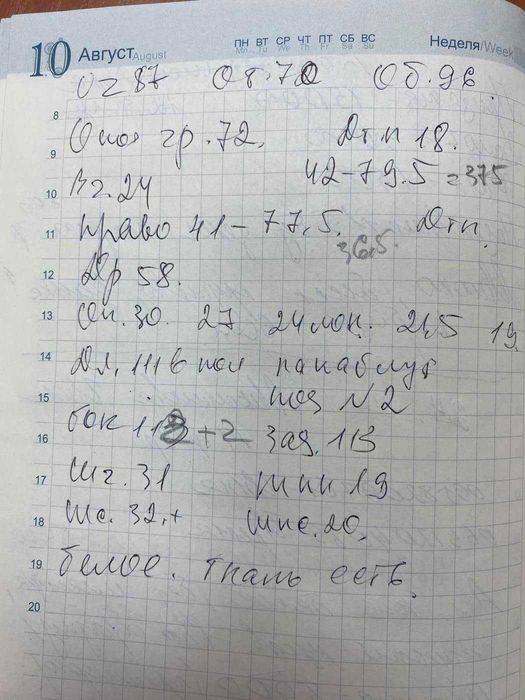 10 Август August ПН ВТ СР ЧТ ПТ СБ ВС Неделя/Week
Mo Tu We Th Fr Sa Su
Ог 87 От. 70 Об. 96
8
Опог гр. 72. Дтп 18.
9
42-79.5 = 375
10 Вг. 24
11 право 41-77,5. Дтп.
36,5.
12 Др 58.
13 Оп. 30. 27 24 лок. 21,5 19
14 Дл. 111 в пол на каблук
15 поз №2
16 бок 113+2 зад. 113
17 шг. 31 шпп 19
18 Шс. 32,+ шпс. 20,
19 белое. ткань есть.
20